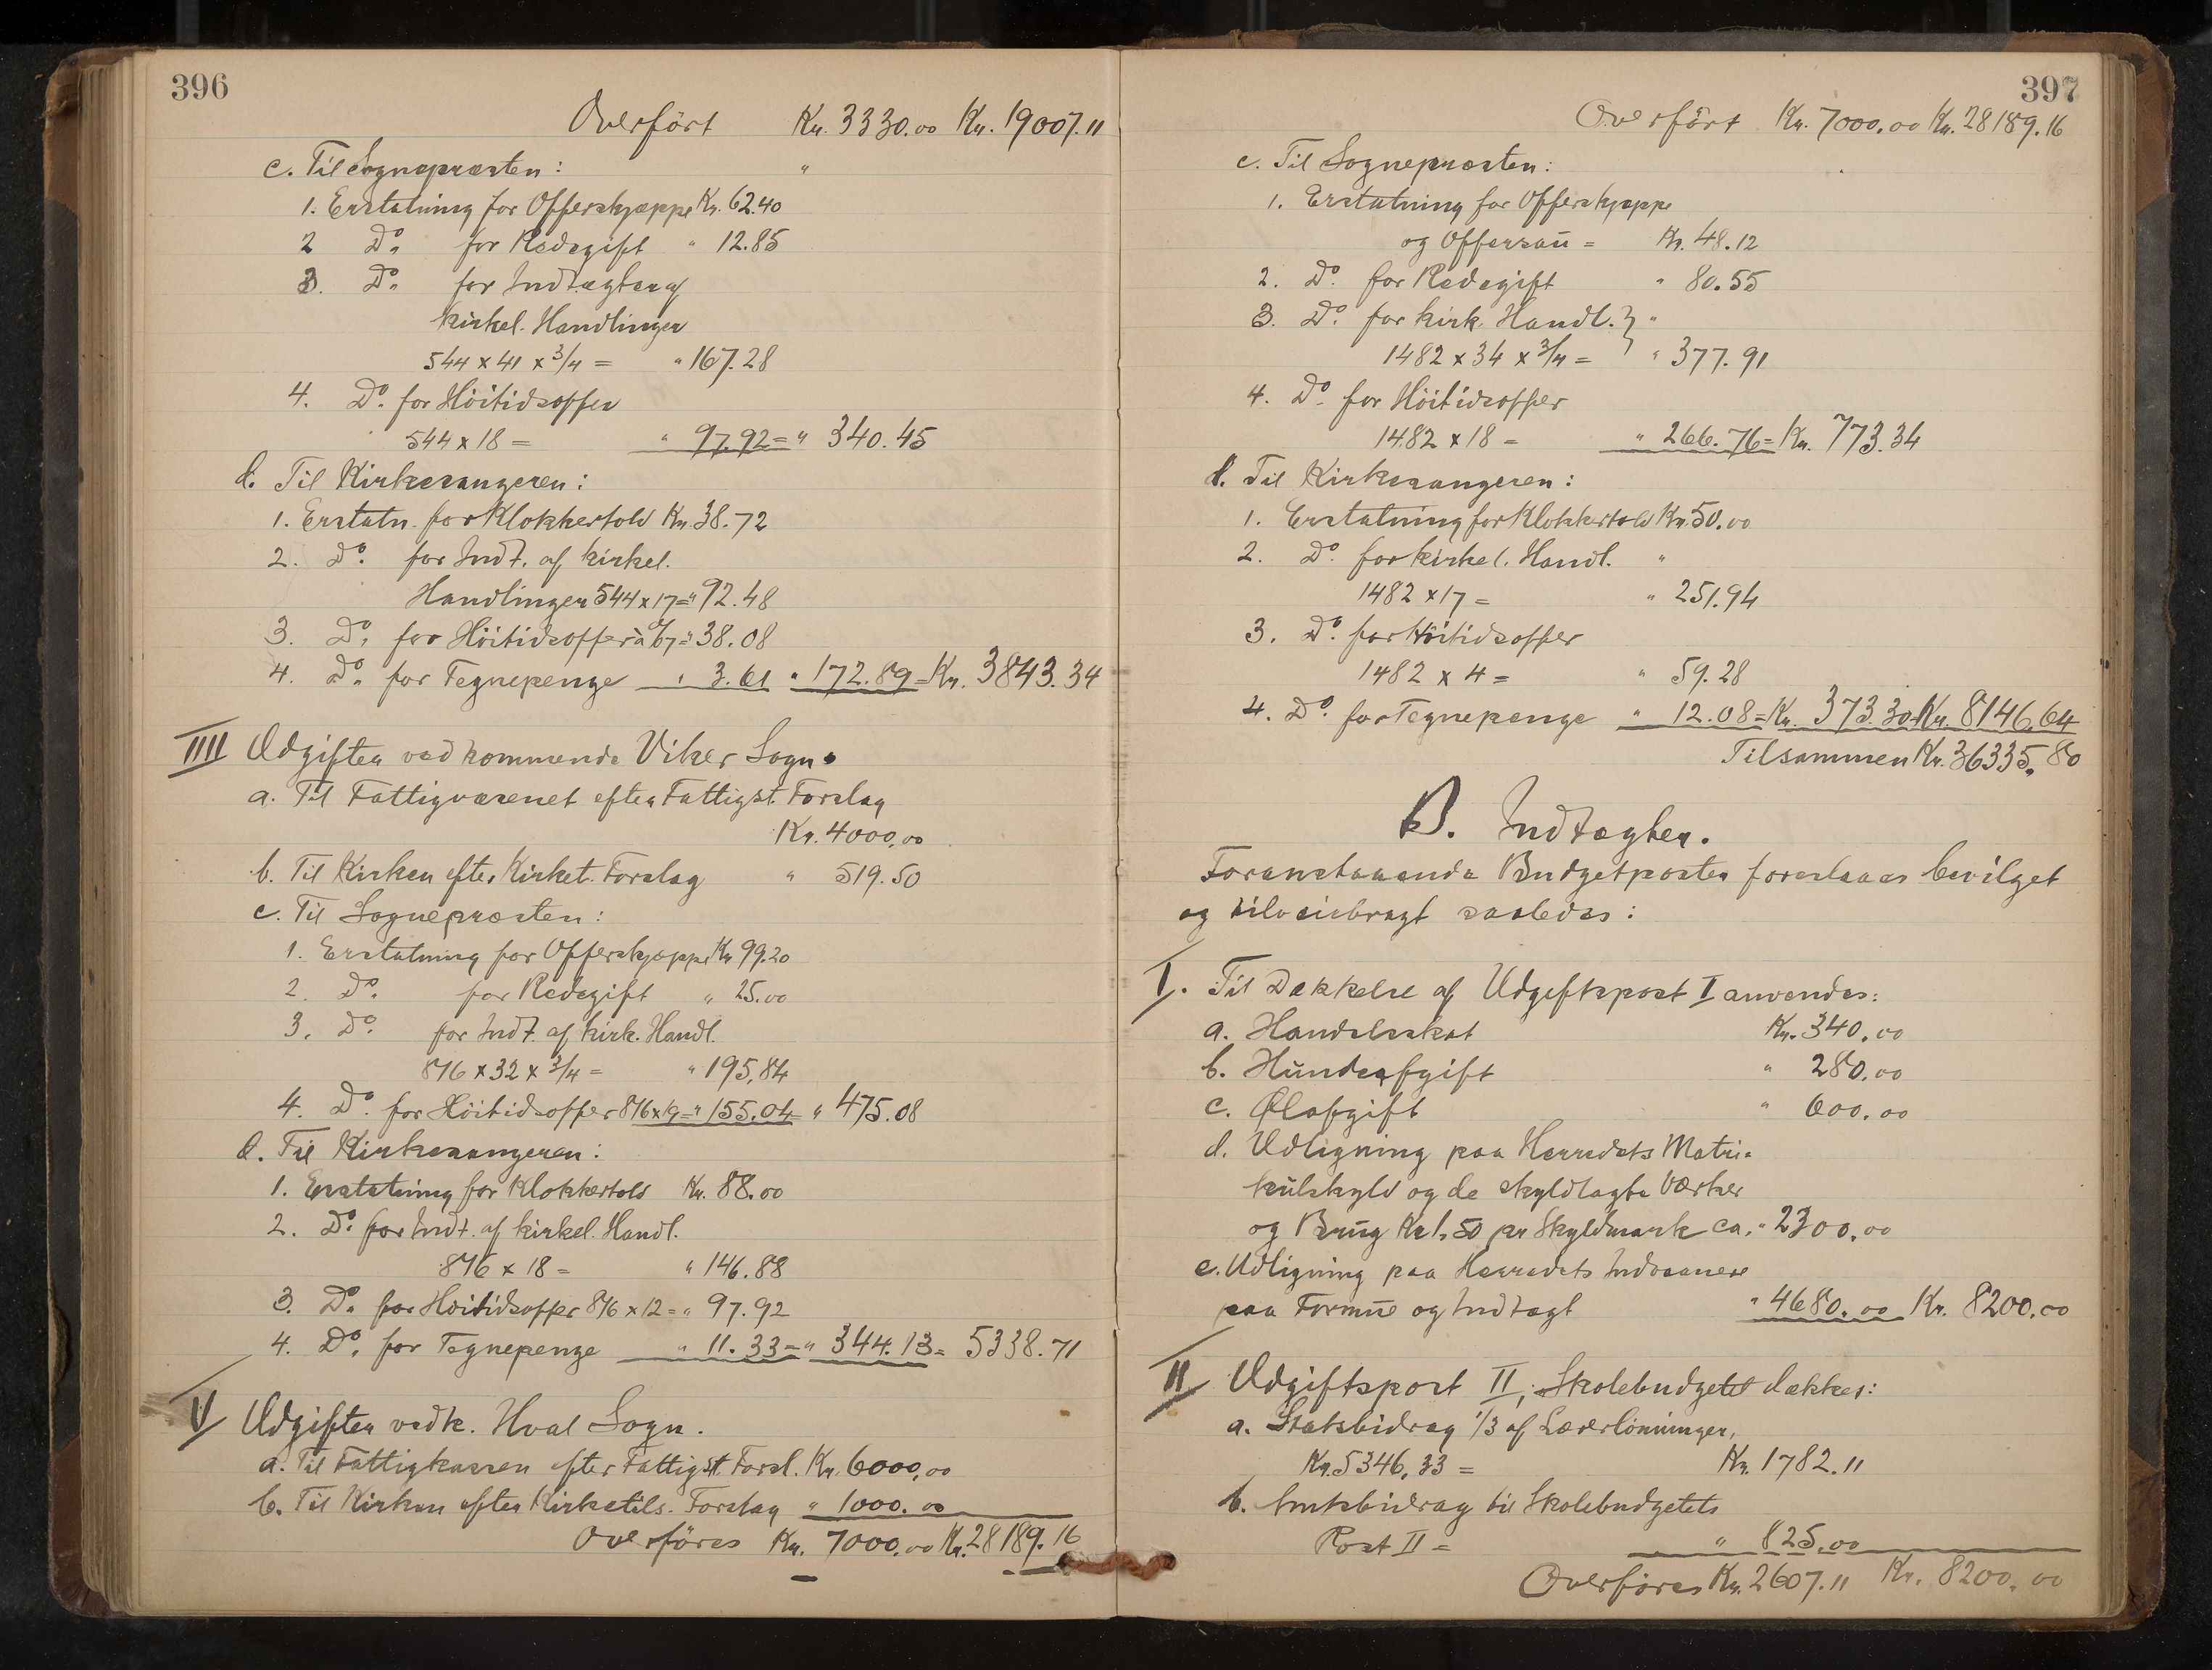 396
Overført Kr. 3330.00 Kr. 19007.11
c. Til Sognepræsten: "
1. Erstatning for Offerskjæppe Kr. 62.40
2 Do. for Redegift " 12.85
3. Do. for Indtægter af
kirkel. Handlinger
544 x 41 x 3/4 = " 167.28
4. Do. for Höitidsoffer
544 x 18 = " 97.92 = " 340.45
d. Til Kirkesangeren:
1. Erstatn. for Klokkertold Kr. 38.72
2. Do. for Indt. af kirkel.
Handlinger 544 x 17 = " 92.48
3. Do. for Höitidsoffer à 07 = " 38.08
4. Do. for Tegnepenge " 3.61 " 172.89 = Kr. 3843.34
IIII Udgifter vedkommende Viker Sogn.
a. Til Fattigvæsenet efter Fattigst. Forslag
Kr. 4000,00
b. Til Kirken efter Kirket. Forslag " 519.50
c. Til Sognepræsten:
1. Erstatning for Offerskjæppe Kr 99.20
2. Do. for Redegift " 25.00
3. Do. for Indt. af kirk. Handl.
816 x 32 x 3/4 = " 195,84
4. Do. for Höitidsoffer 816 x 19 = " 155.04 = " 475.08
d. Til Kirkesangeren:
1. Erstatning for Klokkertold Kr. 88.00
2. Do. for Indt. af kirkel. Handl.
816 x 18 = " 146.88
3. Do. for Höitidsoffer 816 x 12 = " 97.92
4. Do. for Tegnepenge " 11.33 = " 344.13 = 5338.71
V Udgifter vedk. Hval Sogn.
a. Til Fattigkassen efter Fattigst. Forsl. Kr. 6000,00
b. Til Kirken efter Kirketils. Forslag " 1000.00
Overföres Kr. 7000.00 Kr. 28189.16
397
Overfört Kr. 7000.00 Kr. 28189.16
c. Til Sognepræsten:
1. Erstatning for Offerskjæppe
og Offersau = Kr. 48.12
2. Do. for Redegift " 80.55
3. Do. for kirk. Handl. } "
1482 x 34 x 3/4 = " 377.91
4. Do. for Höitidsoffer
1482 x 18 = " 266.76 = Kr. 773.34
d. Til Kirkesangeren:
1. Erstatning for Klokkertold Kr. 50.00
2. Do. for kirkel. Handl. "
1482 x 17 = " 251.94
3. Do. for Höitidsoffer
1482 x 4 = " 59.28
4. Do. for Tegnepenge " 12.08 = Kr. 373.30 Kr. 8146,64
Tilsammen Kr. 36335,80
B. Indtægter.
Foranstaaende Budgetposter foreslaaes bevilget
og tilveiebragt saaledes:
I. Til Dækkelse af Udgiftspost I anvendes:
a. Handelsskat Kr. 340.00
b. Hundeafgift " 280.00
c. Ølafgift " 600.00
d. Udligning paa Herredets Matri-
kulskyld og de skyldlagte Værker
og Brug Kr 1.50 pr Skyldmark ca. " 2300.00
e. Udligning paa Herredets Indvaanere
paa Formue og Indtægt " 4680.00 Kr. 8200.00
II Udgiftspost II, Skolebudgetet dækkes:
a. Statsbidrag 1/3 af Lærerlönninger,
Kr. 5346.33 = Kr. 1782.11
b. Amtsbidrag til Skolebudgetets
Post II = " 825.00
Overföres Kr. 2607.11 Kr. 8200.00